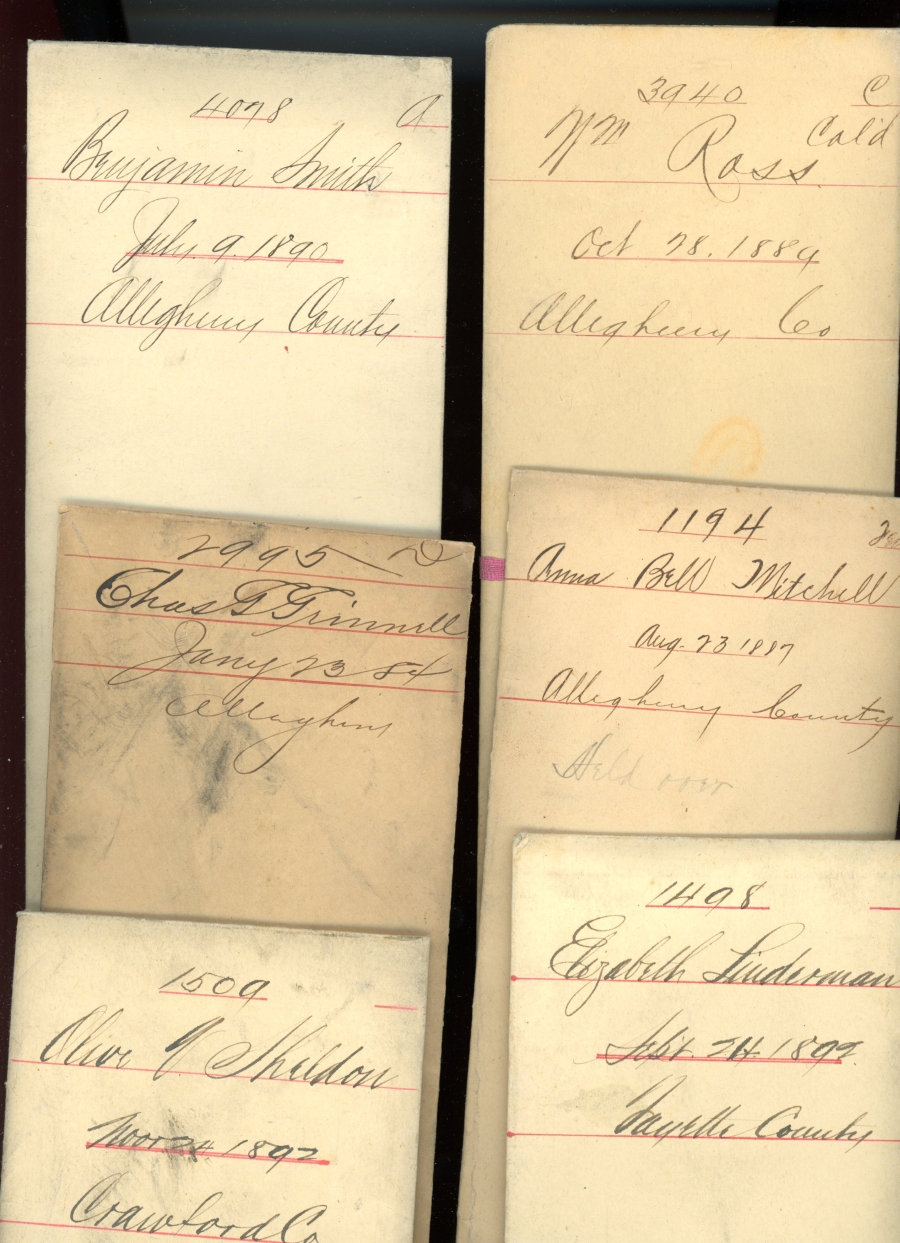 4078 A
Benjamin Smith
July. 9. 1890
Allegheny County
3940 C
Wm Ross Col'd
Oct 28. 1889
Allegheny Co
2995 D
Chas F Trinnell
Jany 23 84
Allegheny
1194
Anna Bell Mitchell
Aug. 23 1887
Allegheny County
Held over
1509
Olive Sheldon
Nov 24 1892
Crawford Co
1498
Elizabeth Linderman
Sept 24 1892
Fayette County